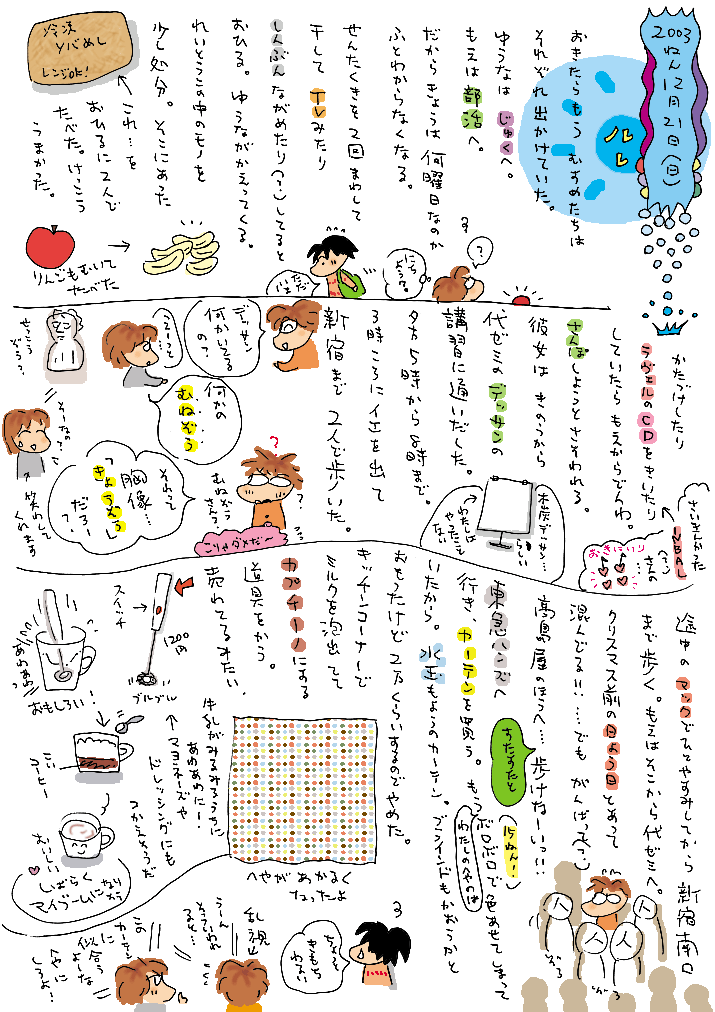 2003ねん12月21日(日)
ハレ
おきたらもう むすめたちは
それぞれ出かけていた。
ゆうなは じゅくへ。
もえは 部活へ。
だからきょうは 何曜日なのか
ふとわからなくなる。
せんたくきを 2回まわして
干して TVみたり
しんぶんながめたり(?)してると
おひる。ゆうながかえってくる。
れいとうこの中のモノを
少し処分。そこにあった
これ…を
おひるに2人で
たべた。けっこう
うまかった。
冷凍
レンジOK!
りんごもむいて
たべた
ただいま
にちようび?
?
かたづけしたり
ラヴェルのCDをきいたり
していたら もえからでんわ。
さんぽしようとさそわれる。
彼女は きのうから
代ゼミの デッサンの
講習に通いだした。
夕方5時から 8時まで。
3時ころに 家を出て
新宿まで 2人で歩いた。
さいきんかった
INBAL
(?)
さんの
おきにいり
木炭デッサン…
らしい
わたしは
やったこと
ない
デッサン
何かいてる
の?
えーっと…
何かの
むねぞう
せっこう
ぞう?
?
むねぞう
さん?
それって
胸像…
「きょうぞう」
だろー
?
こりゃダメだ〜
そーなの?
笑わして
くれます
途中の マックでひとやすみしてから 新宿南口
まで歩く。もえはそこから代ゼミへ。
クリスマス前の日よう日とあって
混んでる!!……でも がんばって(?)
高島屋のほうへ… 歩けねーいっ!!
東急ハンズへ
行き、カーテンを買う。もう
(15ねん!)
ボロボロで色あせてしまって
わたしのへやのは
いたから。水玉もようのカーテン。ブラインドもかおうかと
おもったけど 2万くらいするのでやめた。
キッチンコーナーで
ミルクを泡出てて
カプチーノにある
道具をかう。
売れてるみたい。
すたすたと
人
人
人
人
スイッチ
1200円
ブルブル
牛乳がみるみるうちに
あわあわにー!
マヨネーズや
ドレッシングにも
つかえそうだ
あわあわっ
おもしろい!
こい
コーヒー
おいしい
しばらく
マイブームになりそう
へやがあかるく
なったよ
ちょっと
きもち
わるい
乱視
うーん
そういわれ
ると…
この
カーテン
に
似合う
よーな
へやに
しろよ!